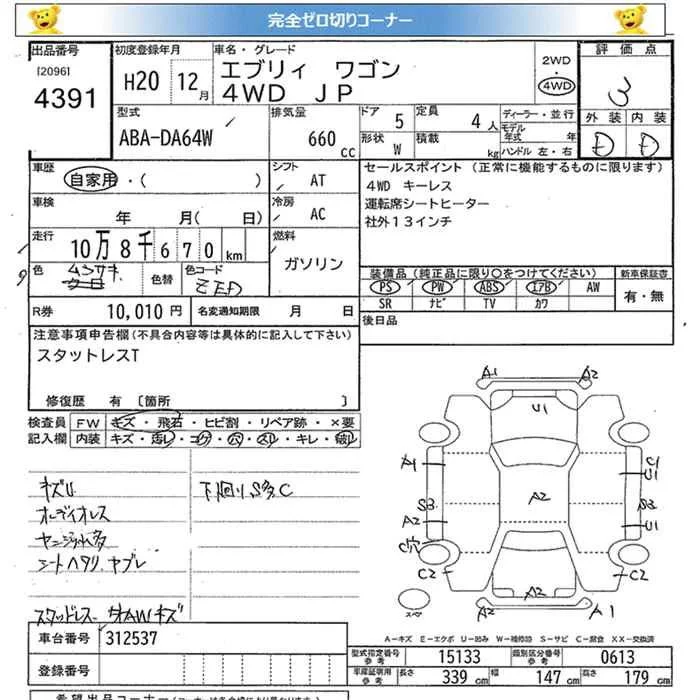 完全ゼロ切りコーナー
出品番号 初度登録年月 車名・グレード 評価点
[2096]
4391 H20 12月 エブリィ ワゴン
4WD JP
2WD
4WD
3
外装 内装
D D
型式 排気量 ドア 定員 ディーラー・並行
ABA-DA64W 660 cc 5 4人 モデル年式 年
形状 W 積載 kg ハンドル 左・右
車歴 シフト セールスポイント (正常に機能するものに限ります)
自家用・( ) AT 4WD キーレス
運転席シートヒーター
社外13インチ
車検 冷房
年 月( 日) AC
走行 燃料
10万8千670km ガソリン
色 色替 色コード 装備品(純正品に限り○をつけてください) 新車保証書
ムラサキ ZED PS PW ABS エアB AW 有・無
クロ SR ナビ TV カワ
R券 10,010円 名変通知期限 月 日 後日品
注意事項申告欄(不具合内容等は具体的に記入して下さい)
スタットレスT
修復歴 有 [箇所 ]
検査員 FW キズ・飛石・ヒビ割・リペア跡・×要
記入欄 内装 キズ・汚レ・コゲ・穴・スレ・キレ・破レ
キズU 下回りS多C
オーディオレス
ヤニ汚れ多
シートヘタリ、ヤブレ
スタッドレス キズ
A1 A2
U1
A1 C1
U1
A2
S3 S3
A2 U1
C穴
C2 C2
A2
スペ A2 A1
A-キズ E-エクボ U-凹み W-補修跡 S-サビ C-腐食 XX-交換済
車台番号 312537
登録番号
型式指定番号 参考 15133 類別区分番号 参考 0613
車庫証明用 参考 長さ 339cm 幅 147cm 高さ 179cm
希望出品コーナー